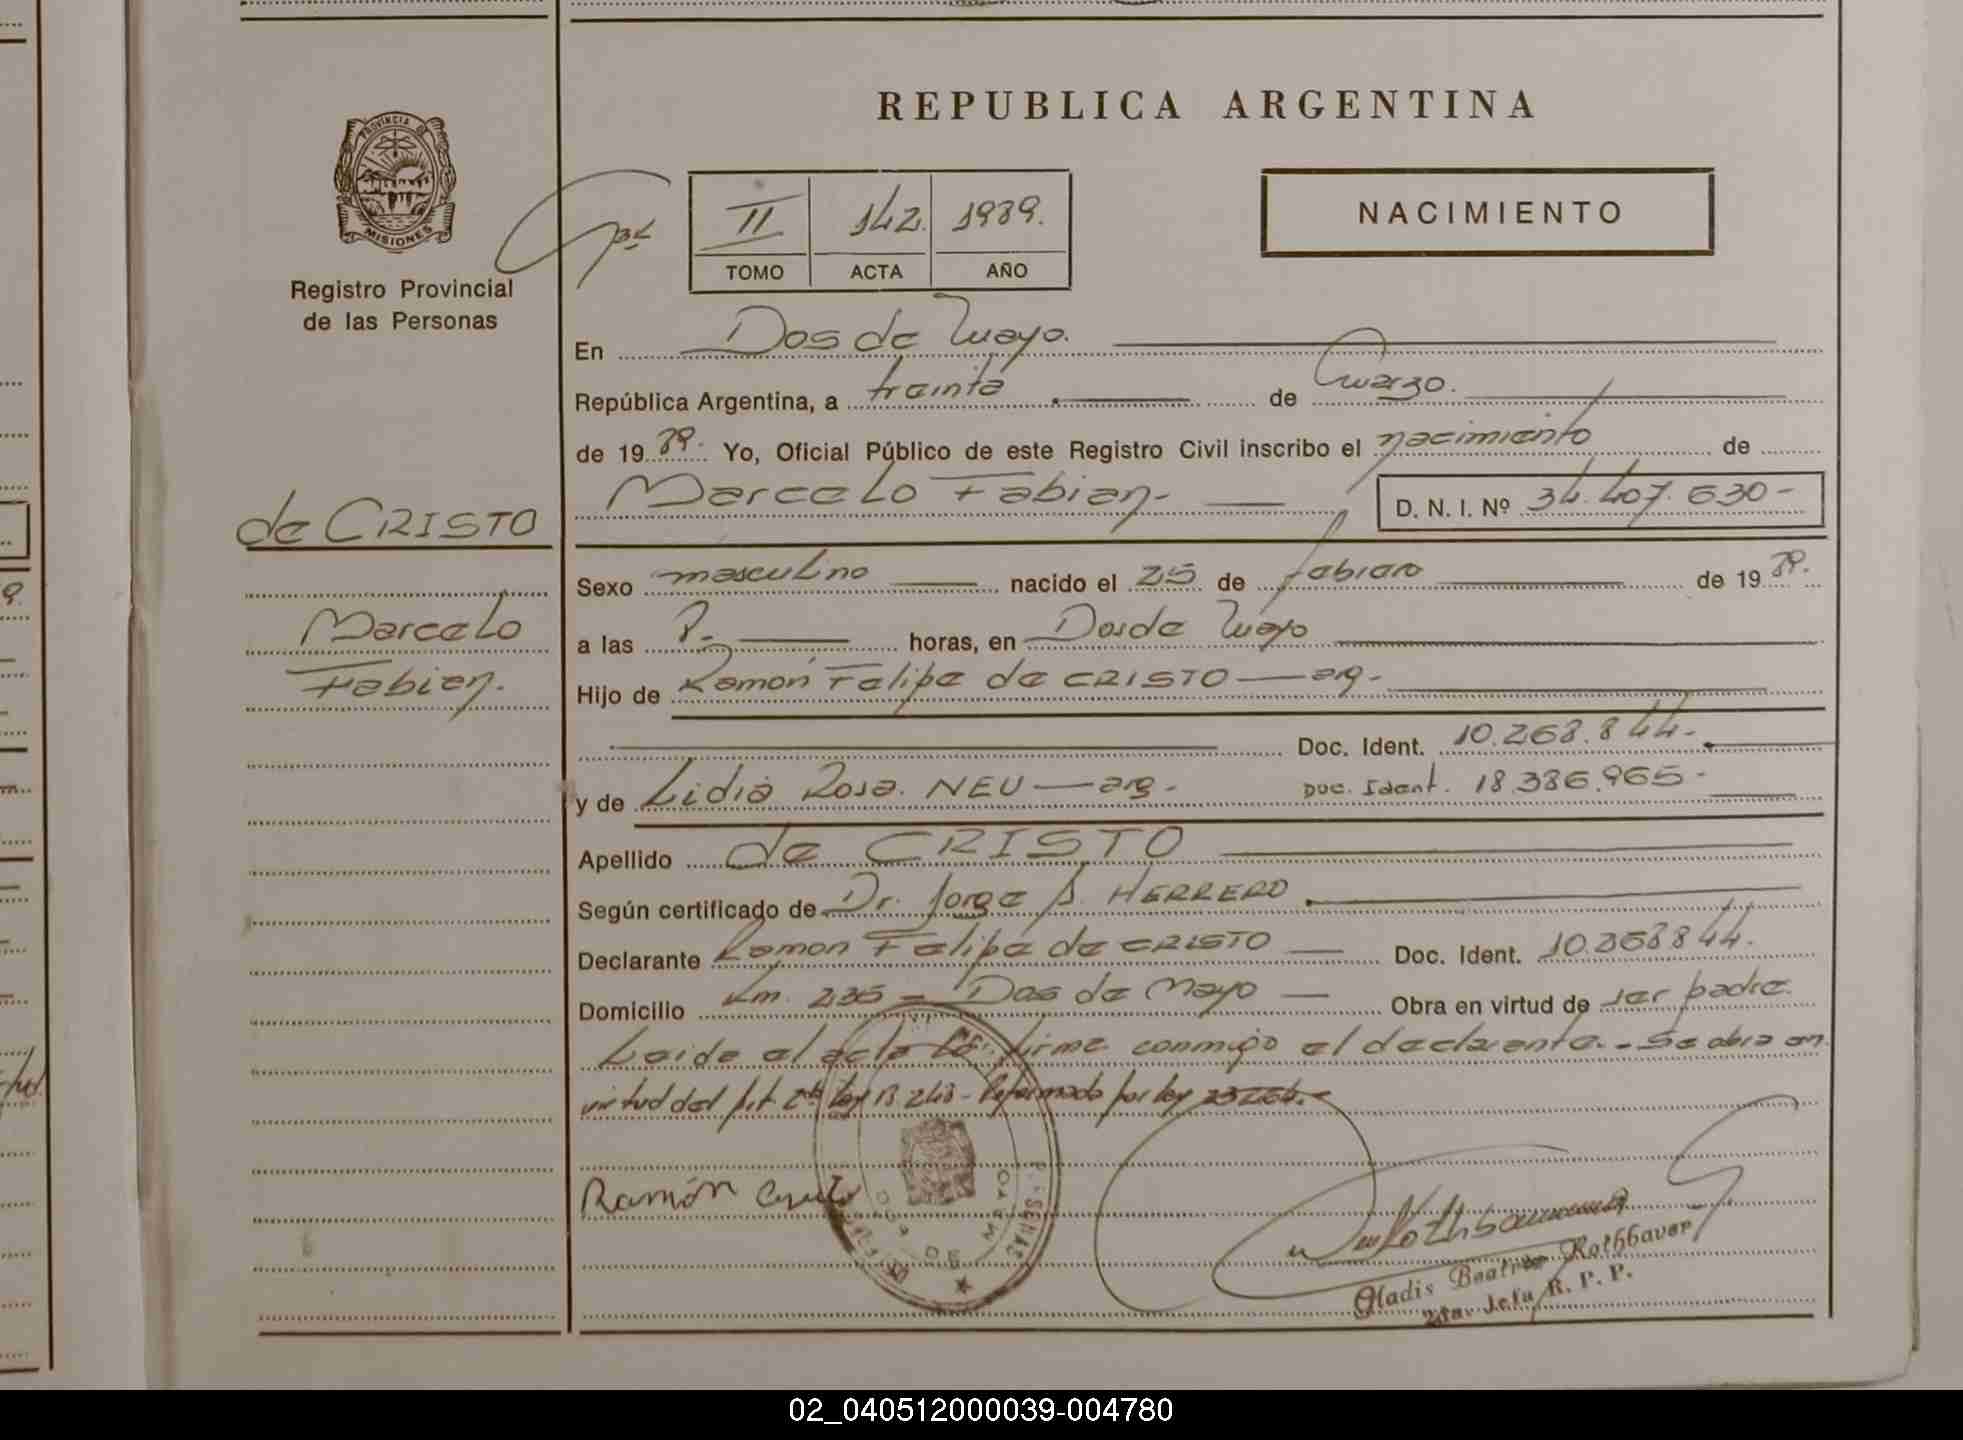 REPUBLICA ARGENTINA
PROVINCIA DE
MISIONES
Registro Provincial
de las Personas
II 142. 1989.
TOMO ACTA AÑO
NACIMIENTO
En Dos de Mayo.
República Argentina, a treinta de marzo.
de 1989. Yo, Oficial Público de este Registro Civil inscribo el nacimiento de
Marcelo Fabian- D. N. I. Nº 34.407.630-
de CRISTO
Marcelo
Fabian.
Sexo masculino nacido el 25 de febrero de 1989.
a las 8.- horas, en Dos de Mayo
Hijo de Ramón Felipe de CRISTO — arg.-
Doc. Ident. 10.268.844.-
y de Lidia Rosa. NEU — arg.- Doc. Ident. 18.386.965-
Apellido de CRISTO
Según certificado de Dr. Jorge A. HERRERO
Declarante Ramon Felipe de CRISTO Doc. Ident. 10.268844.
Domicilio Km. 235 - Dos de Mayo — Obra en virtud de ser padre.
Leida el acta la firma conmigo el declarante.- Se obra en
virtud del Art. 2do Ley 18.248 - Reformado por ley 23264.-
Ramón Cristo
DOS DE MAYO
MISIONES
Rothbauer
Gladis Beatriz Rothbauer
2da. Jefa R. P. P.
02_040512000039-004780